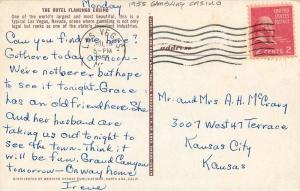 1955 GAMBLING CASINO
Monday
THE HOTEL FLAMINGO CASINO
One of the world's largest and most beautiful, this is a
legal Las Vegas, Nevada, ocean where gambling is not only
legal but ranks as one of the state's
Can you find me here?
Got here today at noon -
We're not here - but hope
to see it tonight. Grace
has an old friend here. She
and her husband are
taking us out tonight to
see the town. Think it
will be fun. Grand Canyon
tomorrow - On way home
Irene
VEGAS
5-PM
1955
address
2 CENTS 2
Mr. and Mrs. A. H. McCrary
3007 West 47 Terrace
Kansas City
Kansas
DISTRIBUTED BY WESTERN